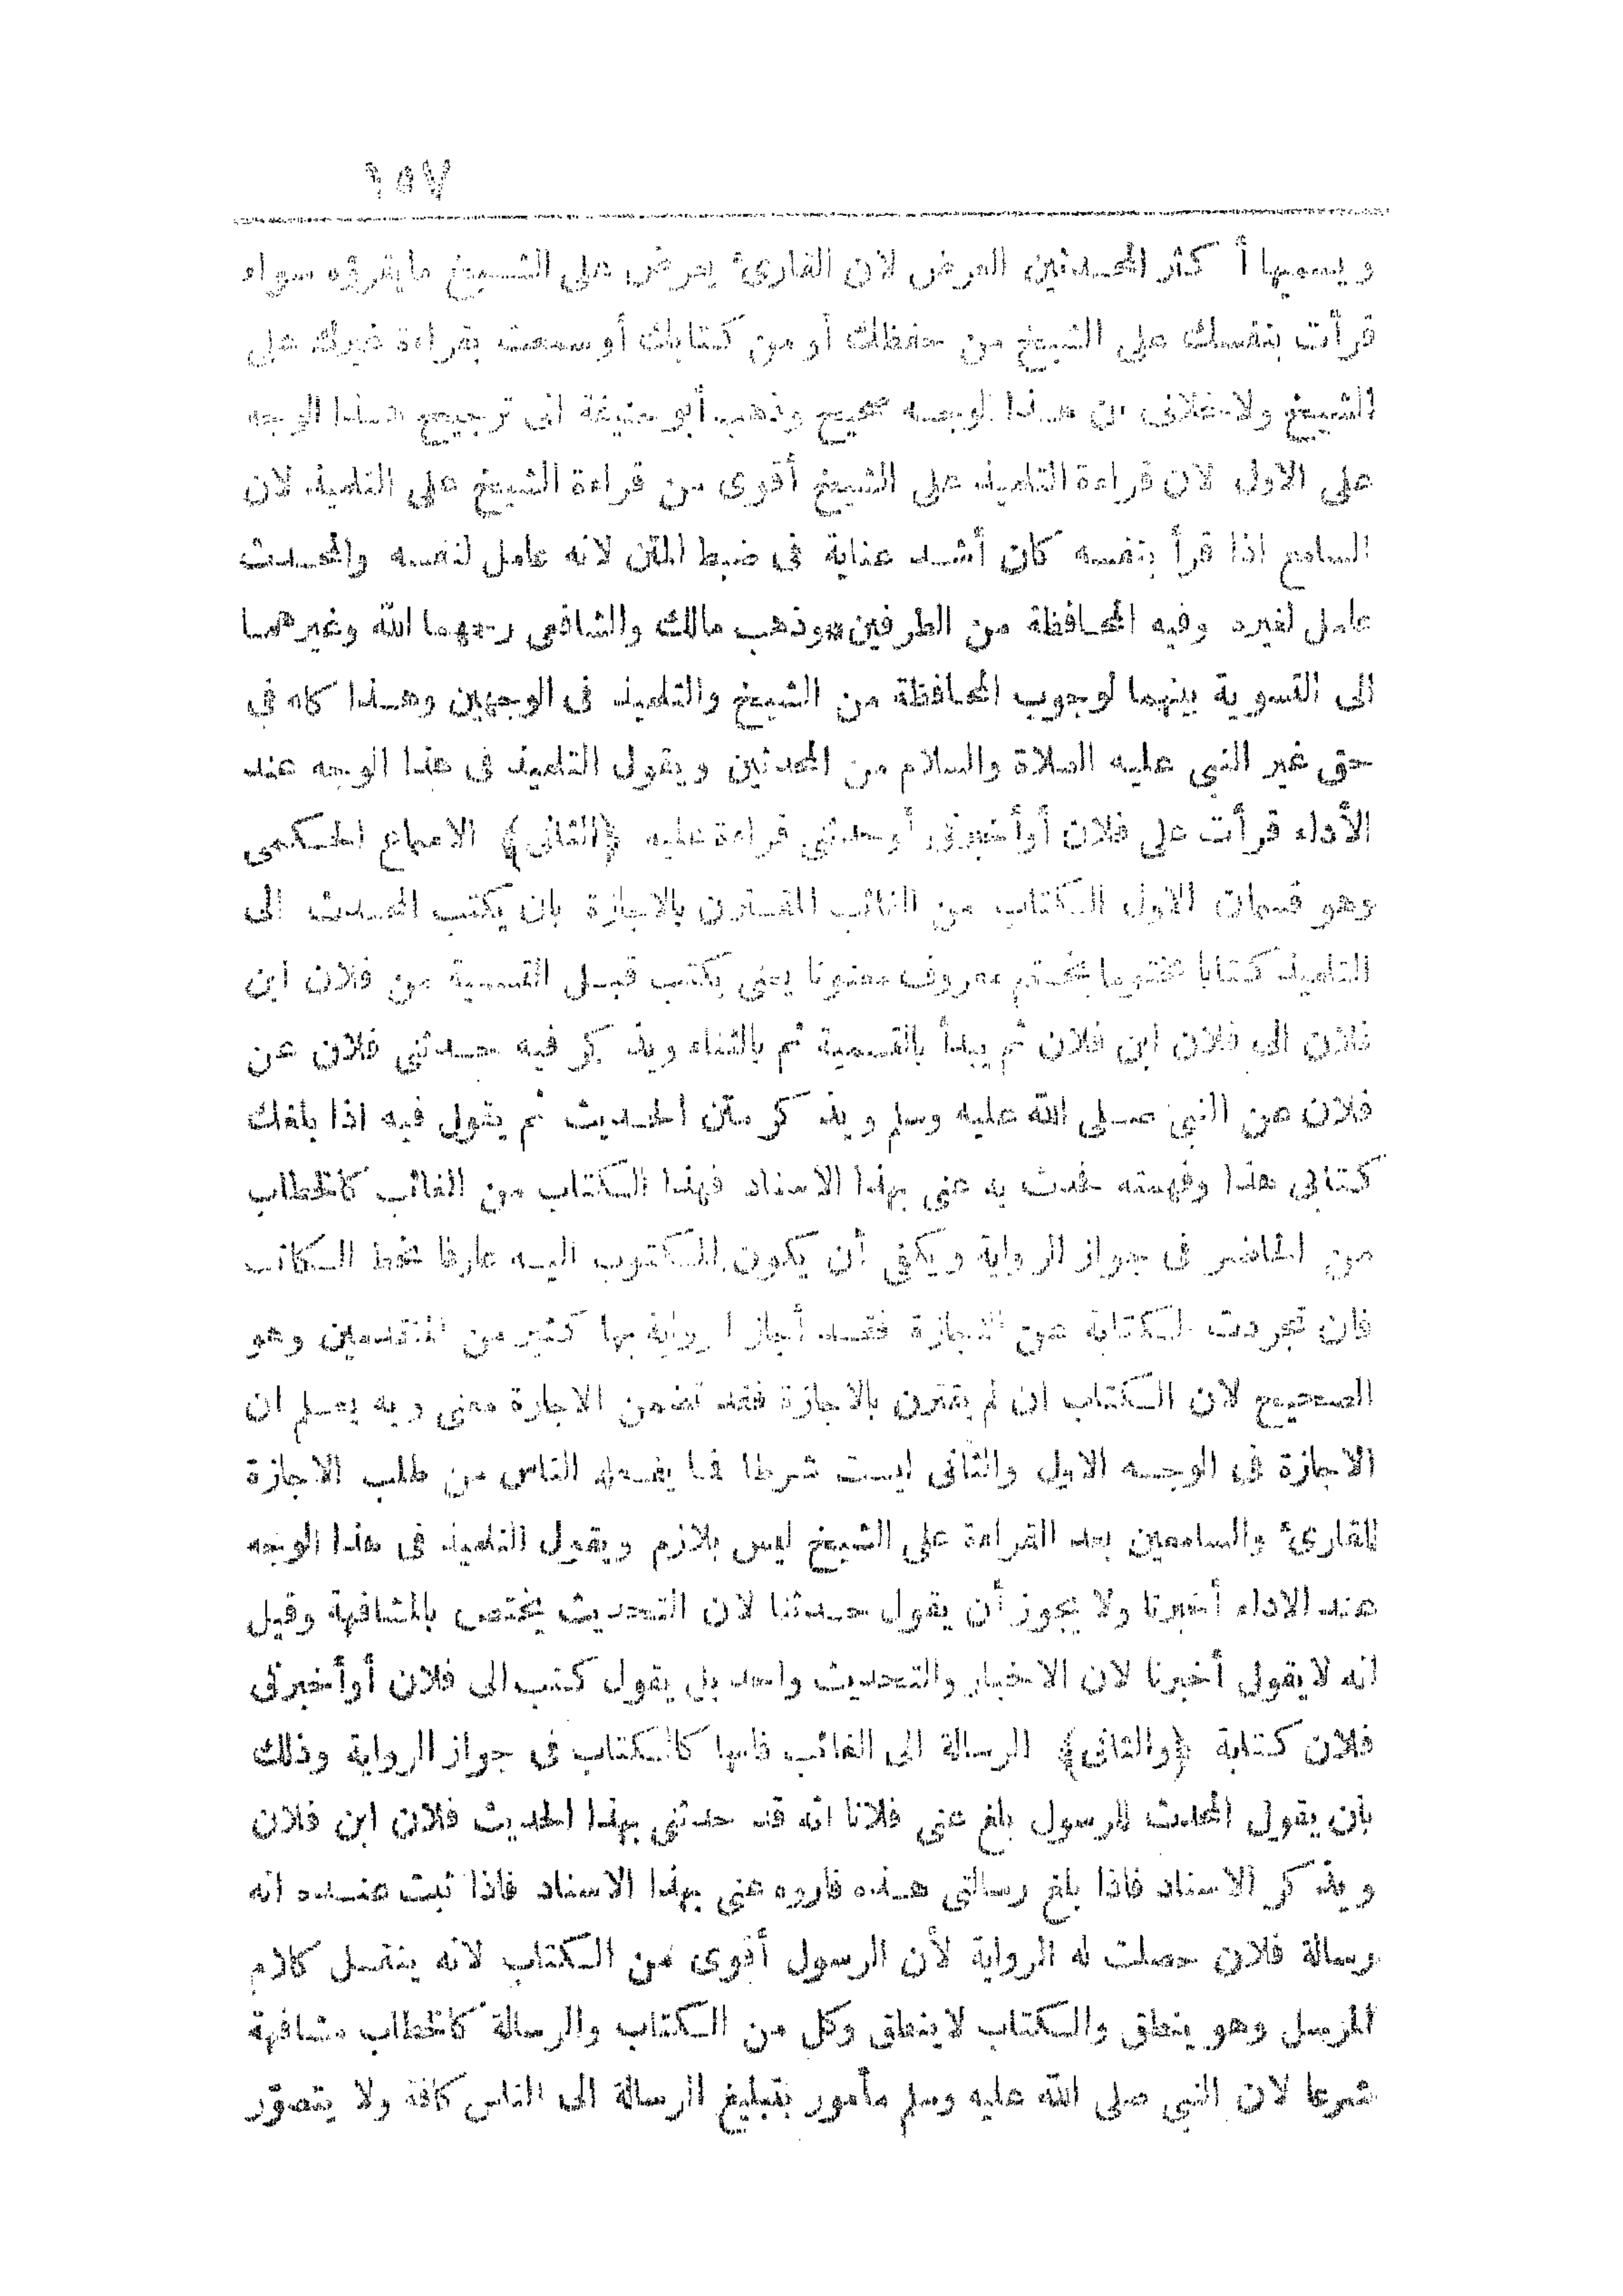 ١٥٧
ويسميها أكثر المحدثين العرض لان القارئ يعرض على الشيخ ما يقرؤه سواء
قرأت بنفسك على الشيخ من حفظك أو من كتابك أو سمعت بقراءة غيرك على
الشيخ ولا خلاف ان هذا الوجه صحيح وذهب أبو حنيفة الى ترجيح هذا الوجه
على الاول لان قراءة التلميذ على الشيخ أقوى من قراءة الشيخ على التلميذ لان
السامع اذا قرأ بنفسه كان أشد عناية فى ضبط المتن لانه عامل لنفسه والمحدث
عامل لغيره وفيه المحافظة من الطرفين * وذهب مالك والشافعى رحمهما الله وغيرهما
الى التسوية بينهما لوجوب المحافظة من الشيخ والتلميذ فى الوجهين وهذا كله فى
حق غير النبى عليه الصلاة والسلام من المحدثين ويقول التلميذ فى هذا الوجه عند
الأداء قرأت على فلان أو أخبرنى أو حدثنى قراءة عليه (الثانى) الاسماع الحكمى
وهو قسمان الاول الكتاب من الغائب المقترن بالاجازة بان يكتب المحدث الى
التلميذ كتابا مختوما بختم معروف معنونا يعنى يكتب قبل التسمية من فلان ابن
فلان الى فلان ابن فلان ثم يبدأ بالتسمية ثم بالثناء ويذكر فيه حدثنى فلان عن
فلان عن النبى صلى الله عليه وسلم ويذكر متن الحديث ثم يقول فيه اذا بلغك
كتابى هذا وفهمته فحدث به عنى بهذا الاسناد فهذا الكتاب من الغائب كالخطاب
من الحاضر فى جواز الرواية ويكفى أن يكون المكتوب اليه عارفا بخط الكاتب
فان تجردت الكتابة عن الاجازة فقد أجاز الرواية بها كثير من المتقدمين وهو
الصحيح لان الكتاب ان لم يقترن بالاجازة فقد تضمن الاجازة معنى وبه يعلم ان
الاجازة فى الوجه الاول والثانى ليست شرطا فما يفعله الناس من طلب الاجازة
للقارئ والسامعين بعد القراءة على الشيخ ليس بلازم ويقول التلميذ فى هذا الوجه
عند الاداء أخبرنا ولا يجوز أن يقول حدثنا لان التحديث يختص بالمشافهة وقيل
انه لا يقول أخبرنا لان الاخبار والتحديث واحد بل يقول كتب الى فلان أو أخبرنى
فلان كتابة (والثانى) الرسالة الى الغائب فانها كالكتاب فى جواز الرواية وذلك
بأن يقول المحدث للرسول بلغ عنى فلانا انه قد حدثنى بهذا الحديث فلان ابن فلان
ويذكر الاسناد فاذا بلغ رسالتى هذه فاروه عنى بهذا الاسناد فاذا ثبت عنده انه
رسالة فلان حصلت له الرواية لأن الرسول أقوى من الكتاب لانه ينقل كلام
المرسل وهو ينطق والكتاب لا ينطق وكل من الكتاب والرسالة كالخطاب مشافهة
شرعا لان النبى صلى الله عليه وسلم مأمور بتبليغ الرسالة الى الناس كافة ولا يتصوّر